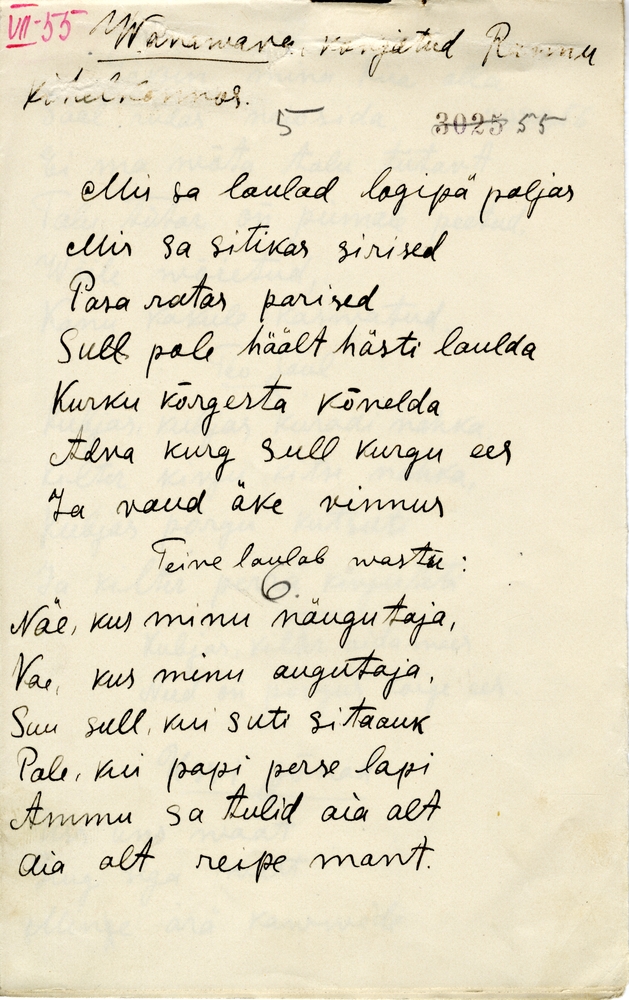 VII-55
Wanawara, korjatud Rannu
kihelkonnas.
5
3025 55
Mis sa laulad logipä paljas
Mis sa sitikas sirised
Pasa ratas parised
Sull pole häält hästi laulda
Kurku kõrgesta kõnelda
Adra kurg sull kurgu ees
Ja vaud äke rinnus
Teine laulab wastu:
6.
Näe, kus minu näugutaja,
Vae, kus minu augutaja,
Suu sull, kui suti sitaauk
Pale, kui papi perse lapi
Ammu sa tulid aia alt
Aia alt reipe mant.